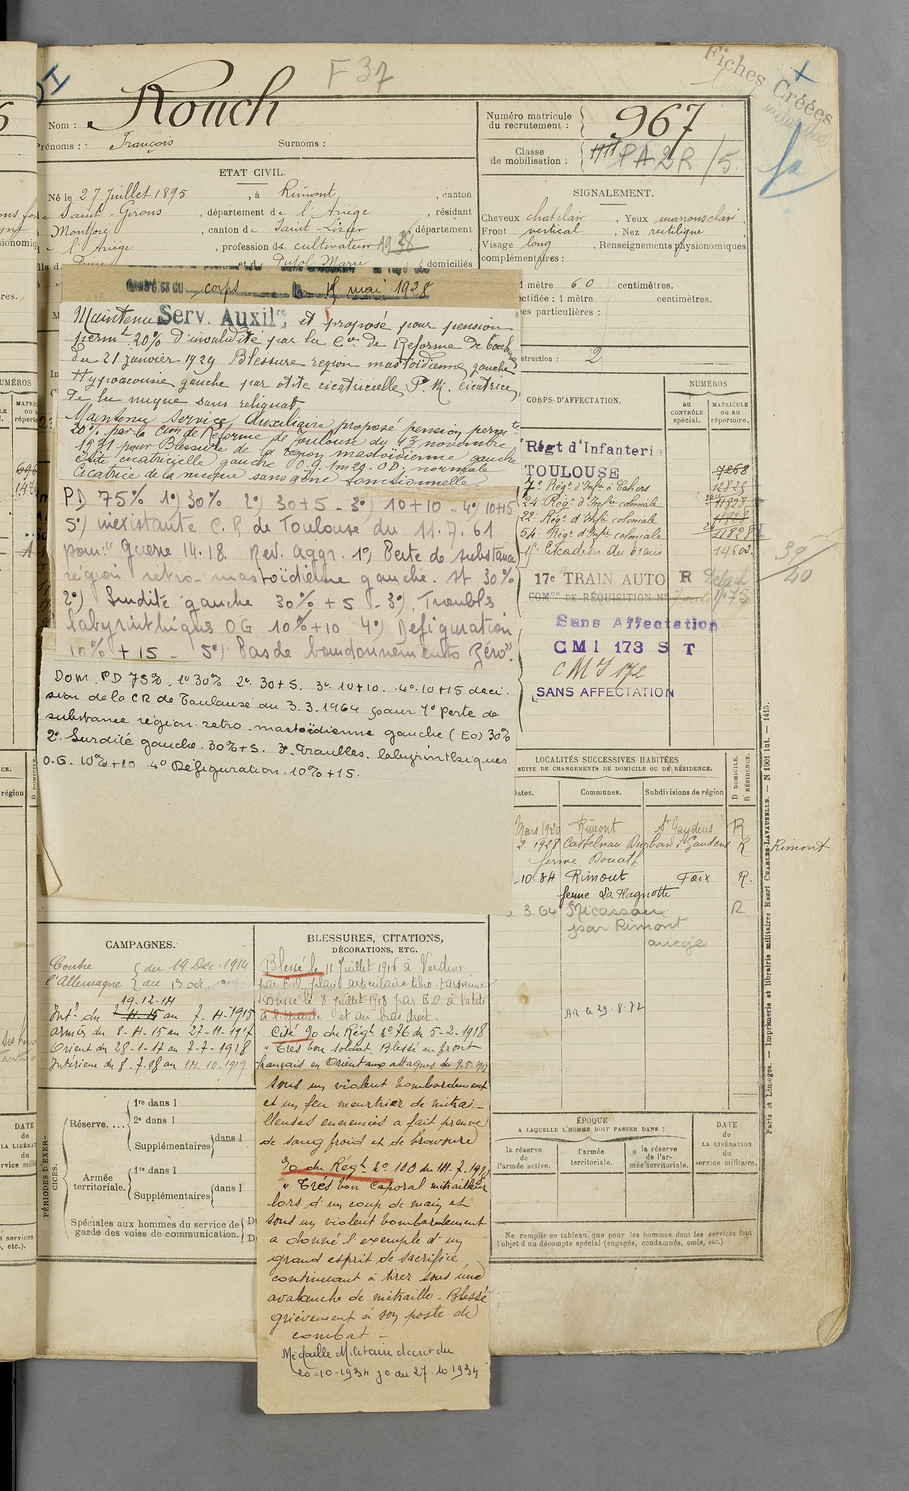 F 37
Fiches Créées
Rouch
Nom :
Prénoms : François
Surnoms :
Numéro matricule
du recrutement :
967
Classe
de mobilisation :
PA2R/5
ETAT CIVIL.
Né le 27 Juillet 1895, à Rimont, canton
de Saint-Girons, département de l'Ariège, résidant
Montjoie, canton de Saint-Lizier, département
de l'Ariège, profession de cultivateur
Pujol Marie domiciliés
SIGNALEMENT.
Cheveux chatclair, Yeux marronsclair
Front vertical, Nez rectiligne
Visage long, Renseignements physionomiques
complémentaires :
1 mètre 60 centimètres.
rectifiée : 1 mètre centimètres.
es particulières :
struction : 2
corps 15 mai 1928
Maintenu Serv. Auxil. et proposé pour pension
perm. 20% d'invalidité par la Con de Reforme de
du 21 janvier 1929 Blessure region mastoïdienne gauche
Hypoacousie gauche par otite cicatricielle P.M. cicatrice
de la nuque sans reliquat
Maintenu Service Auxiliaire proposé pension permte
20% par la Con de Réforme de Toulouse du 13 novembre
1931 pour Blessure de la région mastoïdienne gauche
Otite cicatricielle gauche O.G. 1m29. OD. normale
Cicatrice de la nuque sans gêne fonctionnelle
PD 75% 1°) 30% 2°) 30+5 - 3°) 10+10 - 4°) 10+15
5°) inexistante C.R. de Toulouse du 11.7.61
pour: "Guerre 14.18. Rev. Aggr. 1°) Perte de substance
région rétro-mastoïdienne gauche. st 30%
2°) Surdité gauche 30% + 5 - 3°) Troubles
labyrinthiques OG 10% + 10 4°) Defiguration
10% + 15 - 5°) Pas de bourdonnements Zéro".
Dom. PD 75%. 1° 30% 2° 30+5. 3° 10+10. 4° 10+15 deci-
sion de la CR de Toulouse du 3.3.1964 pour 1° perte de
substance région retro-mastoïdienne gauche (EO) 30%
2° Surdité gauche. 30%+5. 3° Troubles labyrinthiques
O.G. 10%+10 4° Défiguration. 10%+15.
CORPS D'AFFECTATION.
NUMÉROS
au
CONTRÔLE
spécial.
MATRICULE
ou au
répertoire.
Régt d'Infanterie
TOULOUSE 7268
7e Régt d'Infie à Cahors 12828
24 Régt d'Infie coloniale 11828
22e Régt d'Infie coloniale 11828
54e Régt d'Infie coloniale 11828
15e Escadron du train 14502
39/40
17e TRAIN AUTO R
COMon DE RÉQUISITION N°
Sans Affectation
CMI 173 S T
CMI 172
SANS AFFECTATION
LOCALITÉS SUCCESSIVES HABITÉES
SUITE DE CHANGEMENTS DE DOMICILE OU DE RÉSIDENCE.
D DOMICILE.
R RÉSIDENCE.
Dates. Communes. Subdivisions de région
Mars 1920 Rimont St Gaudens R
2 1928 Castelnau Durban St Gaudens R Rimont
ferme Douatt
10.34 Rimont Foix R.
ferme La Hagnotte
3.64 Micassau R
par Rimont
ariège
AR le 29.8.72
CAMPAGNES.
Contre du 19 Déc. 1914
l'Allemagne au 13 oct.
19-12-14
Intr du au 7-4-1915
armées du 8-4-15 au 27-11-1917
Orient du 28-1-17 au 7-7-1918
Intérieur du 8.7.18 au 14.10.1919
BLESSURES, CITATIONS,
DÉCORATIONS, ETC.
Blessé le 11 Juillet 1916 à Verdun
par E.O. plaie articulaire tibio tarsienne
Blessé le 8 juillet 1918 par E.O. à la tête
à l'épaule et au bras droit.
Cité J.O du Régt n° 76 du 5-2-1918
"Très bon soldat. Blessé au front
français en Orient aux attaques du 9.5.1917
sous un violent bombardement
et un feu meurtrier de mitrai-
lleuses ennemies a fait preuve
de sang froid et de bravoure
J.o du Régt n° 100 du 14.7.1918
"Très bon Caporal mitrailleur
lors d'un coup de main et
sous un violent bombardement
a donné l'exemple d'un
grand esprit de sacrifice
continuant à tirer sous une
avalanche de mitraille - Blessé
grièvement à son poste de
combat -
Médaille Militaire décret du
20-10-1934 jo du 27.10.1934
PÉRIODES D'EXER-
CICES.
Réserve....
1re dans l
2e dans l
Supplémentaires dans l
Armée
territoriale.
1re dans l
Supplémentaires dans l
Spéciales aux hommes du service de
garde des voies de communication.
ÉPOQUE
A LAQUELLE L'HOMME DOIT PASSER DANS :
la réserve
de
l'armée active.
l'armée
territoriale.
la réserve
de l'ar-
mée territoriale.
DATE
de
LA LIBÉRATION
du
service militaire.
Ne remplir ce tableau que pour les hommes dont les services font
l'objet d'un décompte spécial (engagés, condamnés, omis, etc.).
Paris et Limoges. — Imprimerie et librairie militaires Henri CHARLES-LAVAUZELLE. — N 1001 int. — 1415.